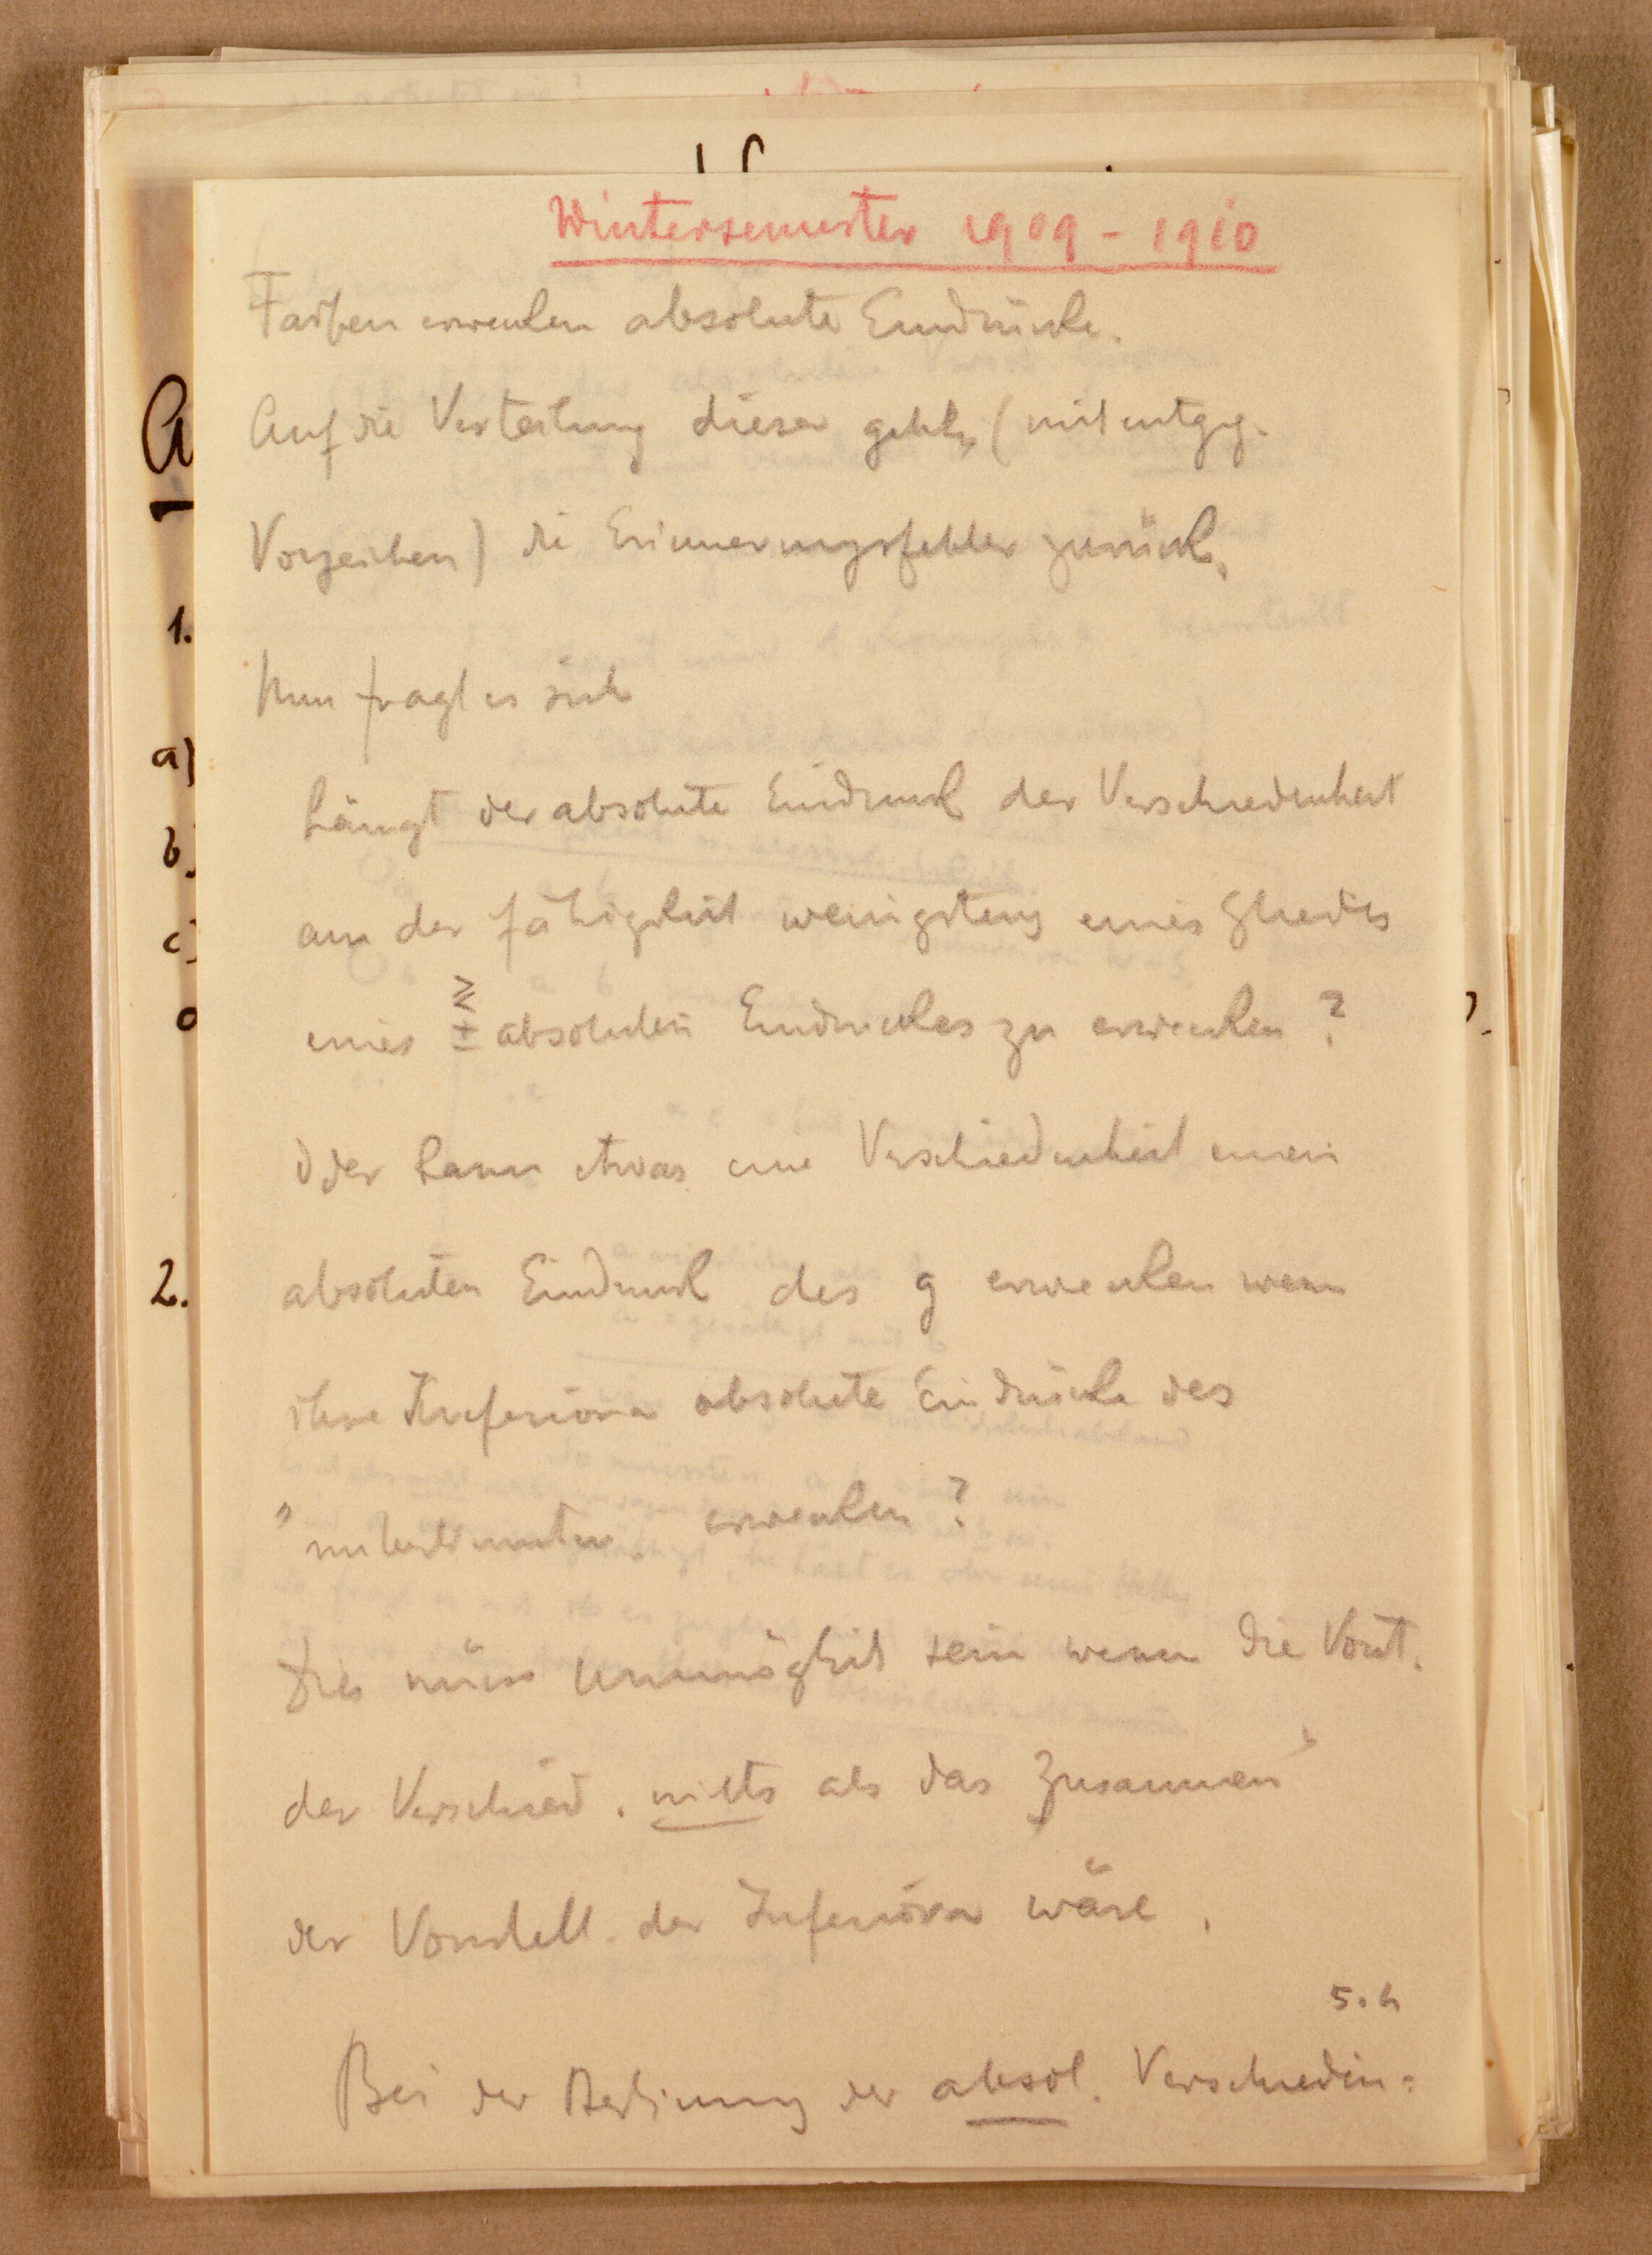 Wintersemester 1909 - 1910
Farben erwecken absolute Eindrücke.
Auf die Verteilung dieser gehen (mit entgeg.
Vorzeichen) die Erinnerungsfehler zurück.
Nun fragt es sich
hängt der absolute Eindruck der Verschiedenheit
an der Fähigkeit wenigstens eines Gliedes
einer ± absoluten Eindruckes zu erwecken?
Oder kann etwas eine Verschiedenheit einen
absoluten Eindruck des g erwecken wenn
ihre Inferiora absolute Eindrücke des
"unbestimmten erwecken?
Dies muss unmöglich sein wenn die Vorst.
der Verschied. nichts als das Zusammen
der Vorstell. der Inferiora wäre.
5.h
Bei der der absol. Verschieden=
1.
a)
b)
c)
2.